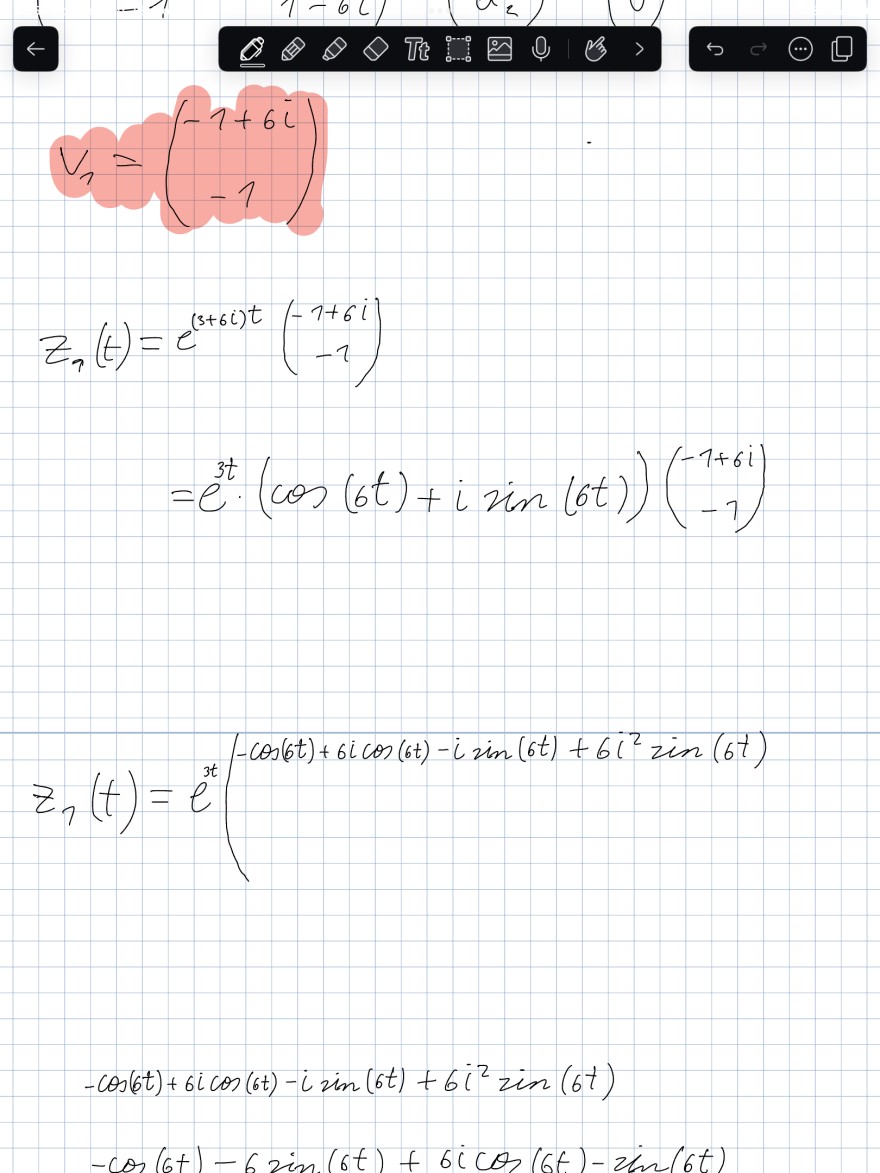 -1 1-6i
Tt
V₁ = (-1+6i
-1)
z₁(t) = e^(3+6i)t (-1+6i
-1)
= e^3t · (cos(6t) + i sin(6t)) (-1+6i
-1)
z₁(t) = e^3t (-cos(6t) + 6i cos(6t) - i sin(6t) + 6i² sin(6t)
-cos(6t) + 6i cos(6t) - i sin(6t) + 6i² sin(6t)
-cos(6t) - 6 sin(6t) + 6i cos(6t) - sin(6t)